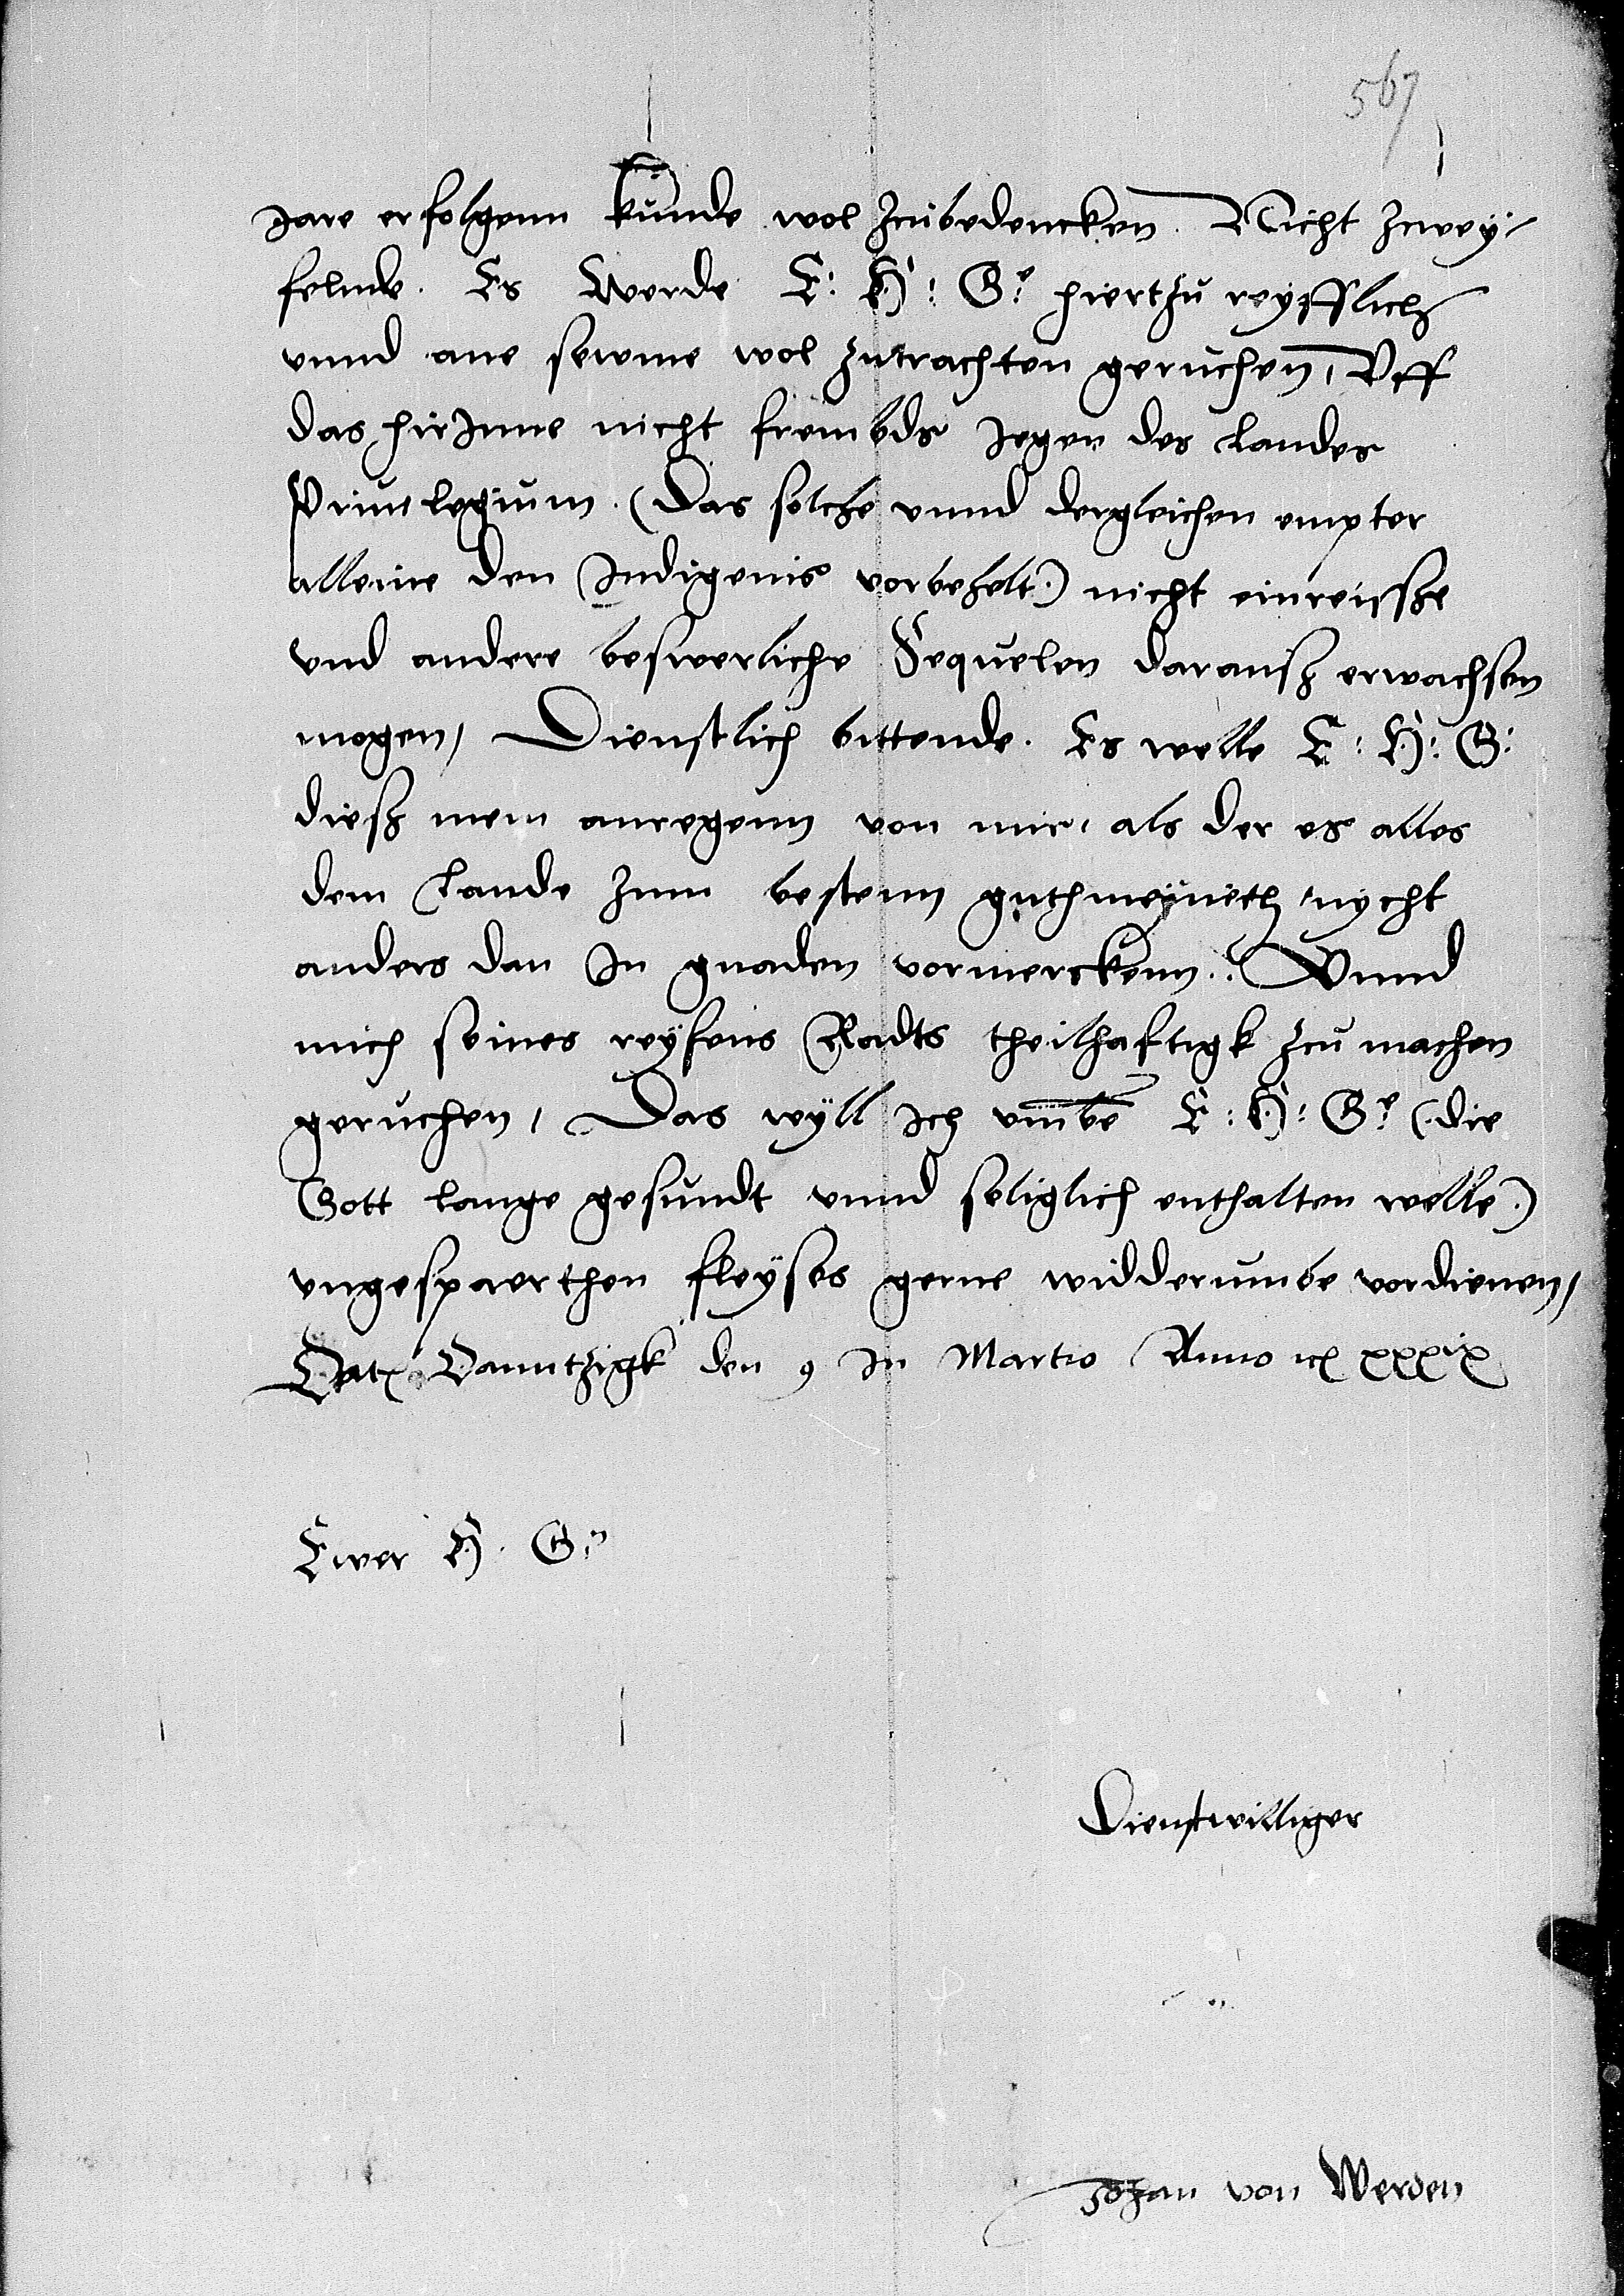 567
Jare erfolgenn kunde wol zcubedencken. Nicht zcwey-
felnde. Es Werde E: H: G: hiertzu reyfflich
vnnd ane sewme wol zutrachten geruchen, Vff
das hirInne nicht frembds Jegen des Landes
Priuilegium. (Das solche vnnd dergleichen empter
alleine den Indigenis vorbehelt.) nicht einreissze
vnd andere beswerliche Sequelen darausz erwachsen
mogen, Dienstlich bittende. Es welle E: H: G:
diesz mein anregenn von mir, als der es alles
dem Lande zum bestenn guthmeyneth, nycht
anders dan In gnaden vormerckenn.. Vnnd
mich seines reyfens Radts theilhaftigk zcu machen
geruchen, Das wyll Ich vmbe E: H: G: (die
Gott lange gesundt vnnd seliglich enthalten welle.)
vngespaerthen fleyses gerne widderumbe vordienen,
Dat. Danntzigk den 9 In Martio Anno xxxix
Ewer H. G.
Dienstwilliger
Johan von Werden